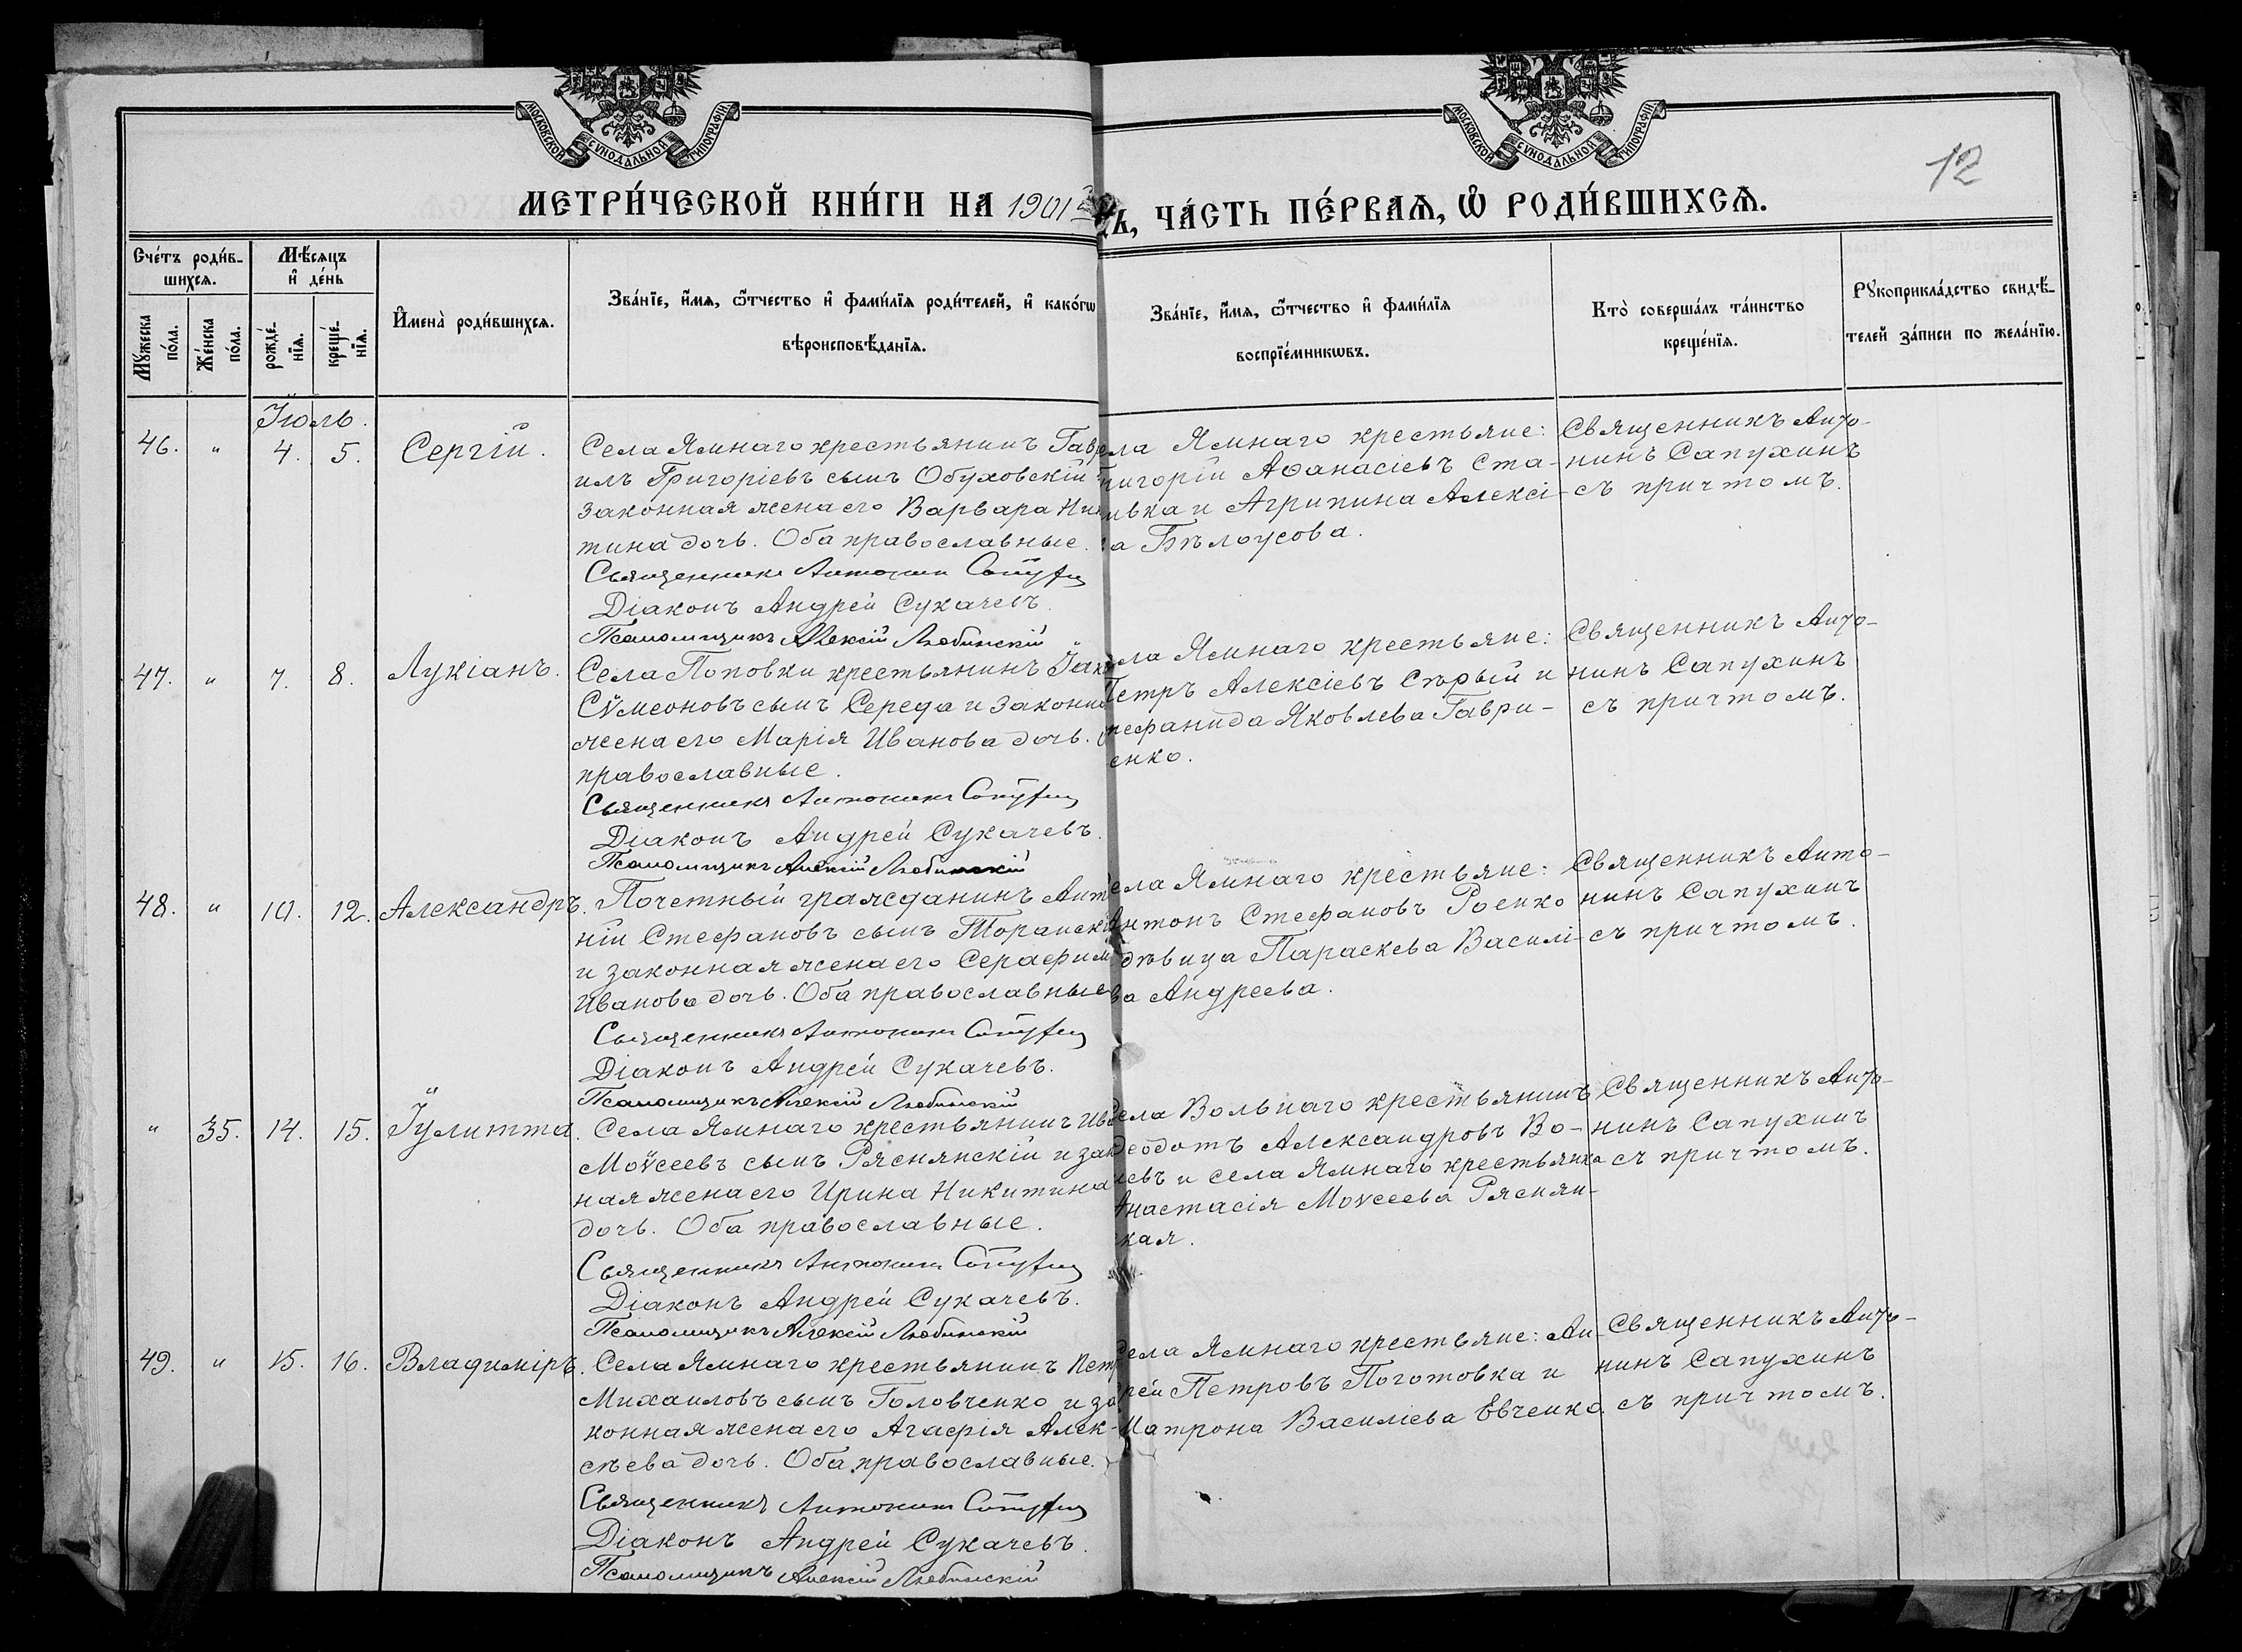 МОСКОВСКОЙ СУНОДАЛЬНОЙ ТИПОГРАФІИ
МОСКОВСКОЙ СУНОДАЛЬНОЙ ТИПОГРАФІИ
12
МЕТРИ́ЧЕСКОЙ КНИ́ГИ НА 1901
ЧА́СТЬ ПЕ́РВАѦ, Ѡ РОДИ́ВШИХСѦ.
Сче́тъ роди́в-
шихсѧ.
Мꙋжеска по́ла.
Же́нска по́ла.
Мѣ́сѧцъ
и҆ де́нь
рожде́-
нїѧ.
креще́-
нїѧ.
И҆мена̀ роди́вшихсѧ.
Зва́нїе, и҆́мѧ, ѻ҆́тчество и҆ фами́лїѧ роди́телей, и҆ како́гѡ
вѣроисповѣ́данїѧ.
Зва́нїе, и҆́мѧ, ѻ҆́тчество и҆ фами́лїѧ
воспрїе́мникѡвъ.
Кто̀ соверша́лъ та́инство
креще́нїѧ.
Рꙋкоприкла́дство свидѣ́-
телей за́писи по жела́нїю.
Іюль.
46. " 4. 5. Сергій.
Села Ямнаго крестьянинъ Гавр
илъ Григоріевъ сынъ Обуховскій
законная жена его Варвара Ник
тина дочь. Оба православные.
Священникъ Антонин Сапухин
Діаконъ Андрей Сукачевъ.
Псаломщикъ Алексій Любинскій
ела Ямнаго крестьяне:
ригорій Аѳанасіевъ Ста-
ивка и Агрипина Алексі-
ва Бѣлоусова.
Священникъ Анто-
нинъ Сапухинъ
съ причтомъ.
47. " 7. 8. Лукіанъ.
Села Поповки крестьянинъ Іак
Сѵмеоновъ сынъ Середа и законн
жена его Марія Иванова дочь.
православные.
Священникъ Антонинъ Сапухин
Діаконъ Андрей Сукачевъ.
Псаломщикъ Алексій Любинскій
ела Ямнаго крестьяне:
Петръ Алексіевъ Сѣрый и
тефанида Яковлева Гаври-
енко.
Священникъ Анто-
нинъ Сапухинъ
съ причтомъ.
48. " 10. 12. Александръ.
Почетный гражданинъ Ант
ній Стефановъ сынъ Торанск
и законная жена его Серафим
Иванова дочь. Оба православные
Священникъ Антонинъ Сапухин
Діаконъ Андрей Сукачевъ.
Псаломщикъ Алексій Любинскій
ела Ямнаго крестьяне:
Антонъ Стефановъ Роенко
дѣвица Параскева Василі-
ва Андреева.
Священникъ Анто-
нинъ Сапухинъ
съ причтомъ.
" 35. 14. 15. Іулитта.
Села Ямнаго крестьянинъ Ива
Моѵсеевъ сынъ Ряснянскій и зак
ная жена его Ирина Никитина
дочь. Оба православные.
Священникъ Антонинъ Сапухин
Діаконъ Андрей Сукачевъ.
Псаломщикъ Алексій Любинскій
Села Вольнаго крестьянинъ
Ѳеодотъ Александровъ Во-
евъ и села Ямнаго крестьянка
Анастасія Моѵсеева Ряснян-
ская.
Священникъ Анто-
нинъ Сапухинъ
съ причтомъ.
49. " 15. 16. Владиміръ.
Села Ямнаго крестьянинъ Петр
Михаиловъ сынъ Головченко и за
конная жена его Агафія Алек-
сѣева дочь. Оба православные.
Священникъ Антонинъ Сапухин
Діаконъ Андрей Сукачевъ.
Псаломщикъ Алексій Любинскій
Села Ямнаго крестьяне: Ан-
дрей Петровъ Поготовка и
Матрона Василіева Евченко.
Священникъ Анто-
нинъ Сапухинъ
съ причтомъ.